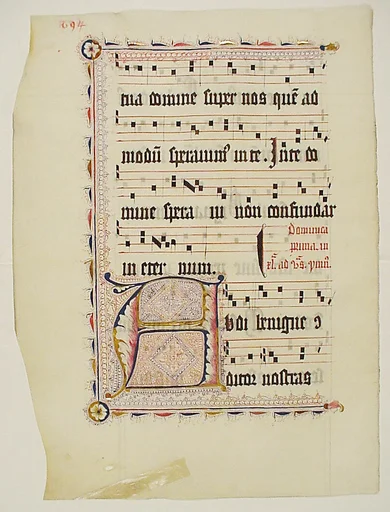 tua domine super nos quē ad
modū speravim' in te. In te do
mine spera vi non confundar
in eter num.
Dominica
prima. in
Audi benigne
ditor nostras